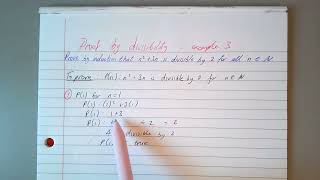 Proof by divisibility - example 3
Prove by induction that n² + 3n is divisible by 2 for all n ∈ N
To prove P(n): n² + 3n is divisible by 2 for n ∈ N
① P(1) for n=1
P(1): (1)² + 3(1)
P(1): 1+3
P(1): 4 ÷ 2 = 2
4 divisible by 2
P(1) true